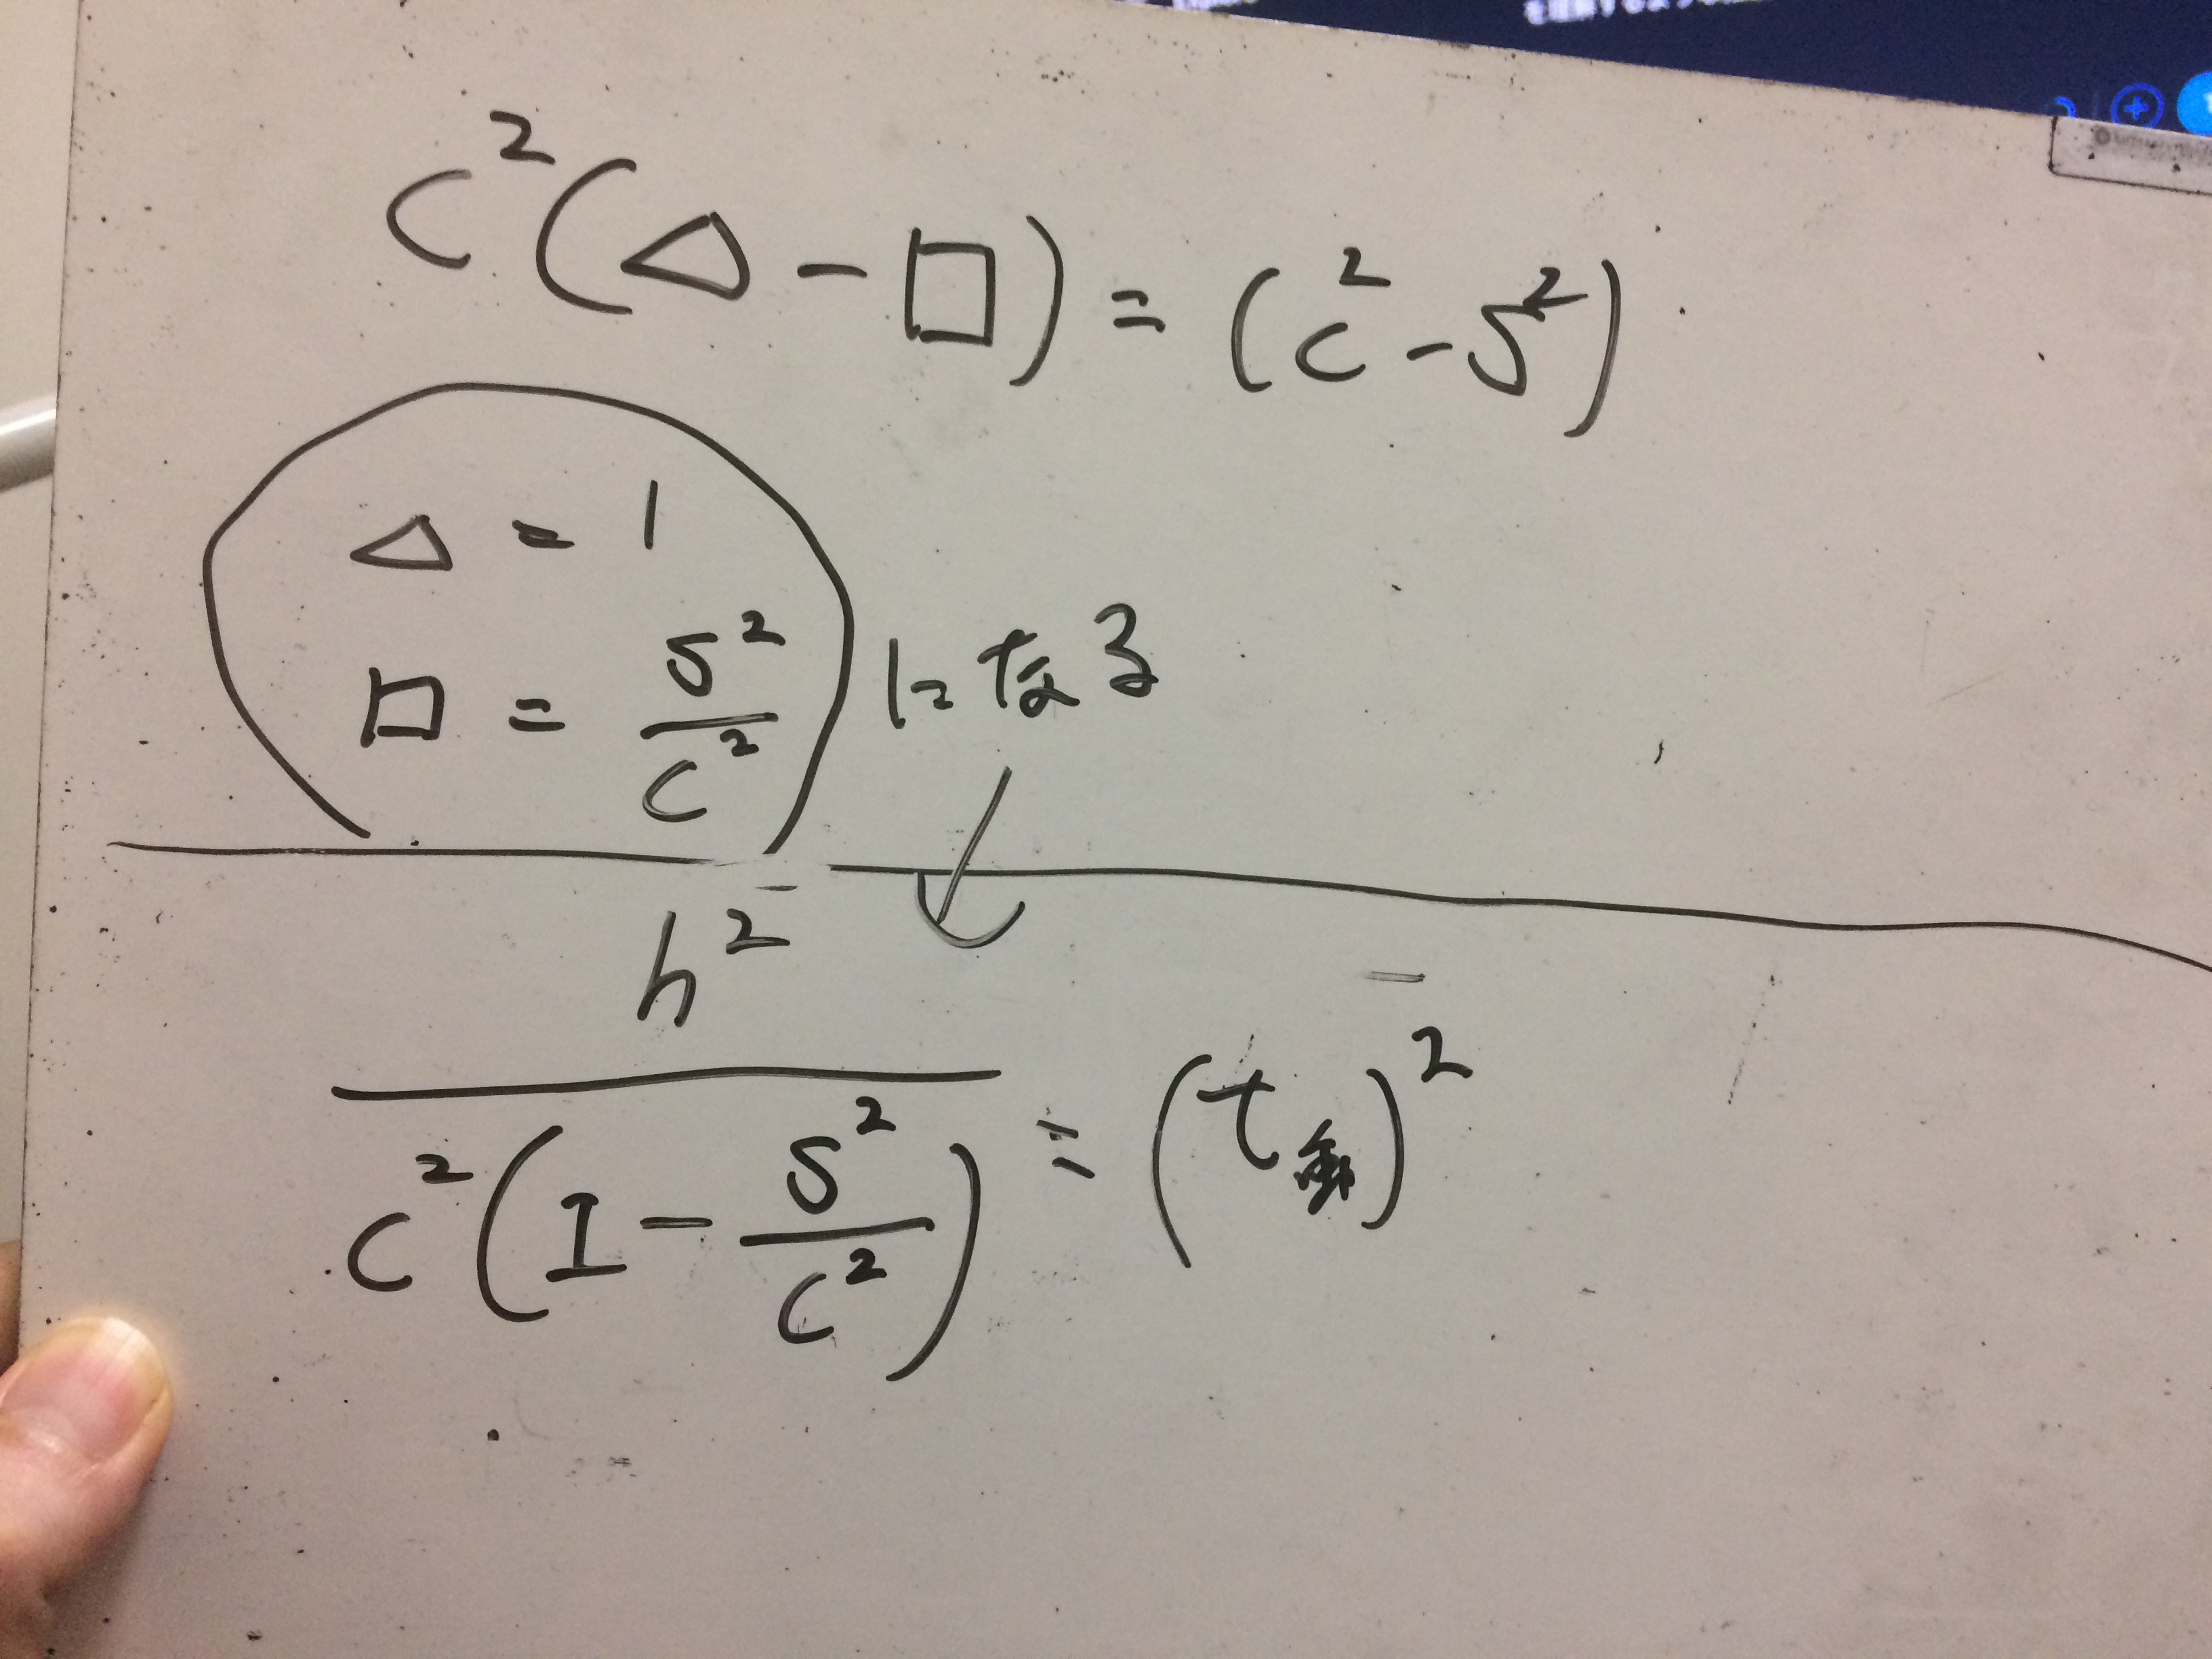 c²(△-□)=(c²-s²)
△=1
□=s²/c² になる
h²/c²(1-s²/c²)=(t)²